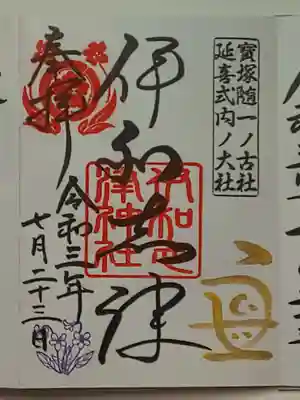 寶塚随一ノ古社
延喜式内ノ大社
伊和志津
伊和志
津神社
奉拝
令和三年
七月二十三日